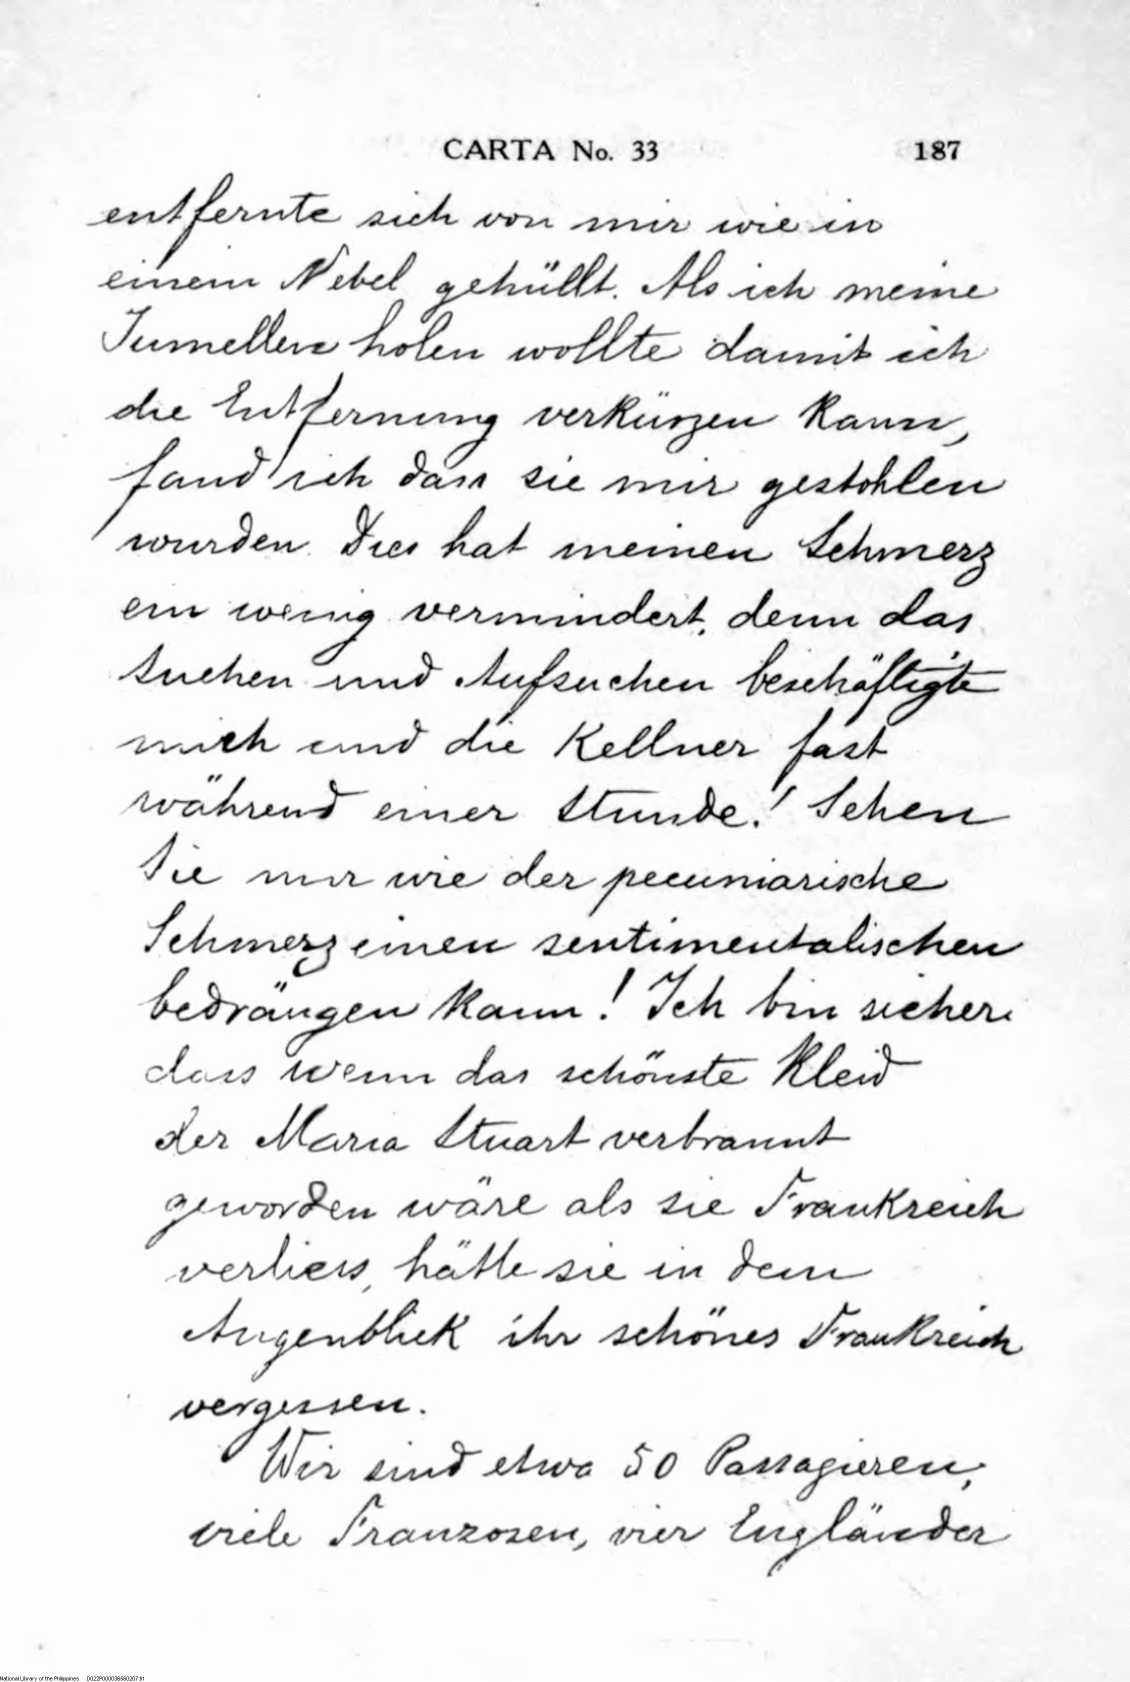 CARTA No. 33 187
entfernte sich von mir wie in
einem Nebel gehüllt. Als ich meine
Jumellen holen wollte damit ich
die Entfernung verkürzen kann,
fand ich dass sie mir gestohlen
wurden. Dies hat meinen Schmerz
ein wenig vermindert, denn das
Suchen und Aufsuchen beschäftigte
mich und die Kellner fast
während einer Stunde! Sehen
Sie nur wie der pecuniarische
Schmerz einen sentimentalischen
bedrängen kann! Ich bin sicher
dass wenn das schönste Kleid
der Maria Stuart verbrannt
geworden wäre als sie Frankreich
verliess, hätte sie in dem
Augenblick ihr schönes Frankreich
vergessen.
Wir sind etwa 50 Passagieren,
viele Franzosen, vier Engländer
National Library of the Philippines